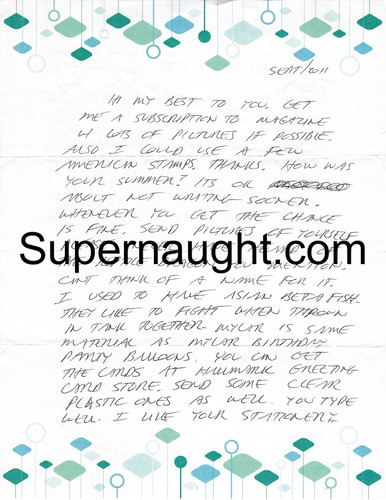 SEPT/2011
HI MY BEST TO YOU. GET
ME A SUBSCRIPTION TO MAGAZINE
W LOTS OF PICTURES IF POSSIBLE.
ALSO I COULD USE A FEW
AMERICAN STAMPS, THANKS. HOW WAS
YOUR SUMMER? ITS OK
ABOUT NOT WRITING SOONER.
WHENEVER YOU GET THE CHANCE
IS FINE. SEND PICTURES OF YOURSELF
Supernaught.com
CANT THINK OF A NAME FOR IT.
I USED TO HAVE ASIAN BETA FISH.
THEY LIKE TO FIGHT WHEN THROWN
IN TANK TOGETHER. MYLAR IS SAME
MATERIAL AS MYLAR BIRTHDAY
PARTY BALOONS. YOU CAN GET
THE CARDS AT HALLMARK GREETING
CARD STORE. SEND SOME CLEAR
PLASTIC ONES AS WELL. YOU TYPE
WELL. I LIKE YOUR STATIONERY.